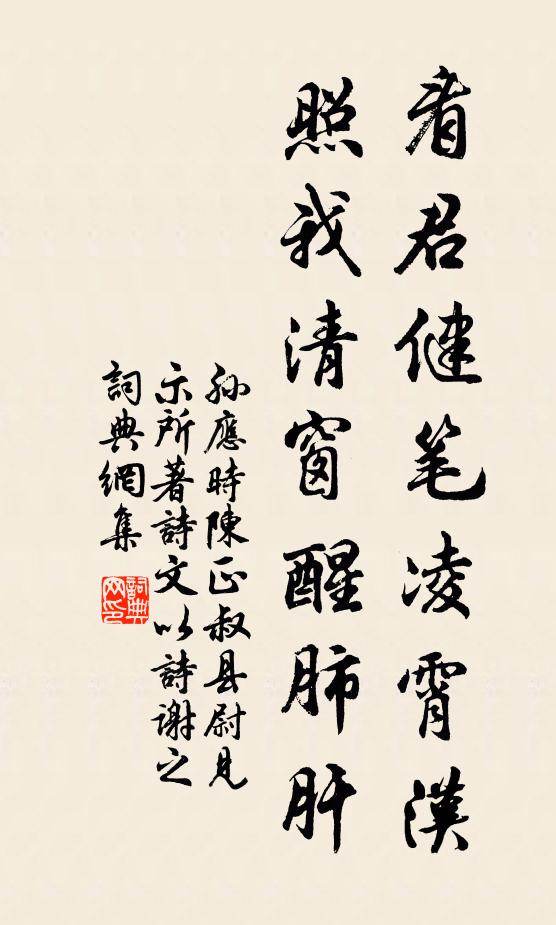 看君健笔凌霄漢
照我清窗醒肺肝
孙應時陳正叔县尉見
示所著詩文以詩謝之
詞典網集
詞典
网印